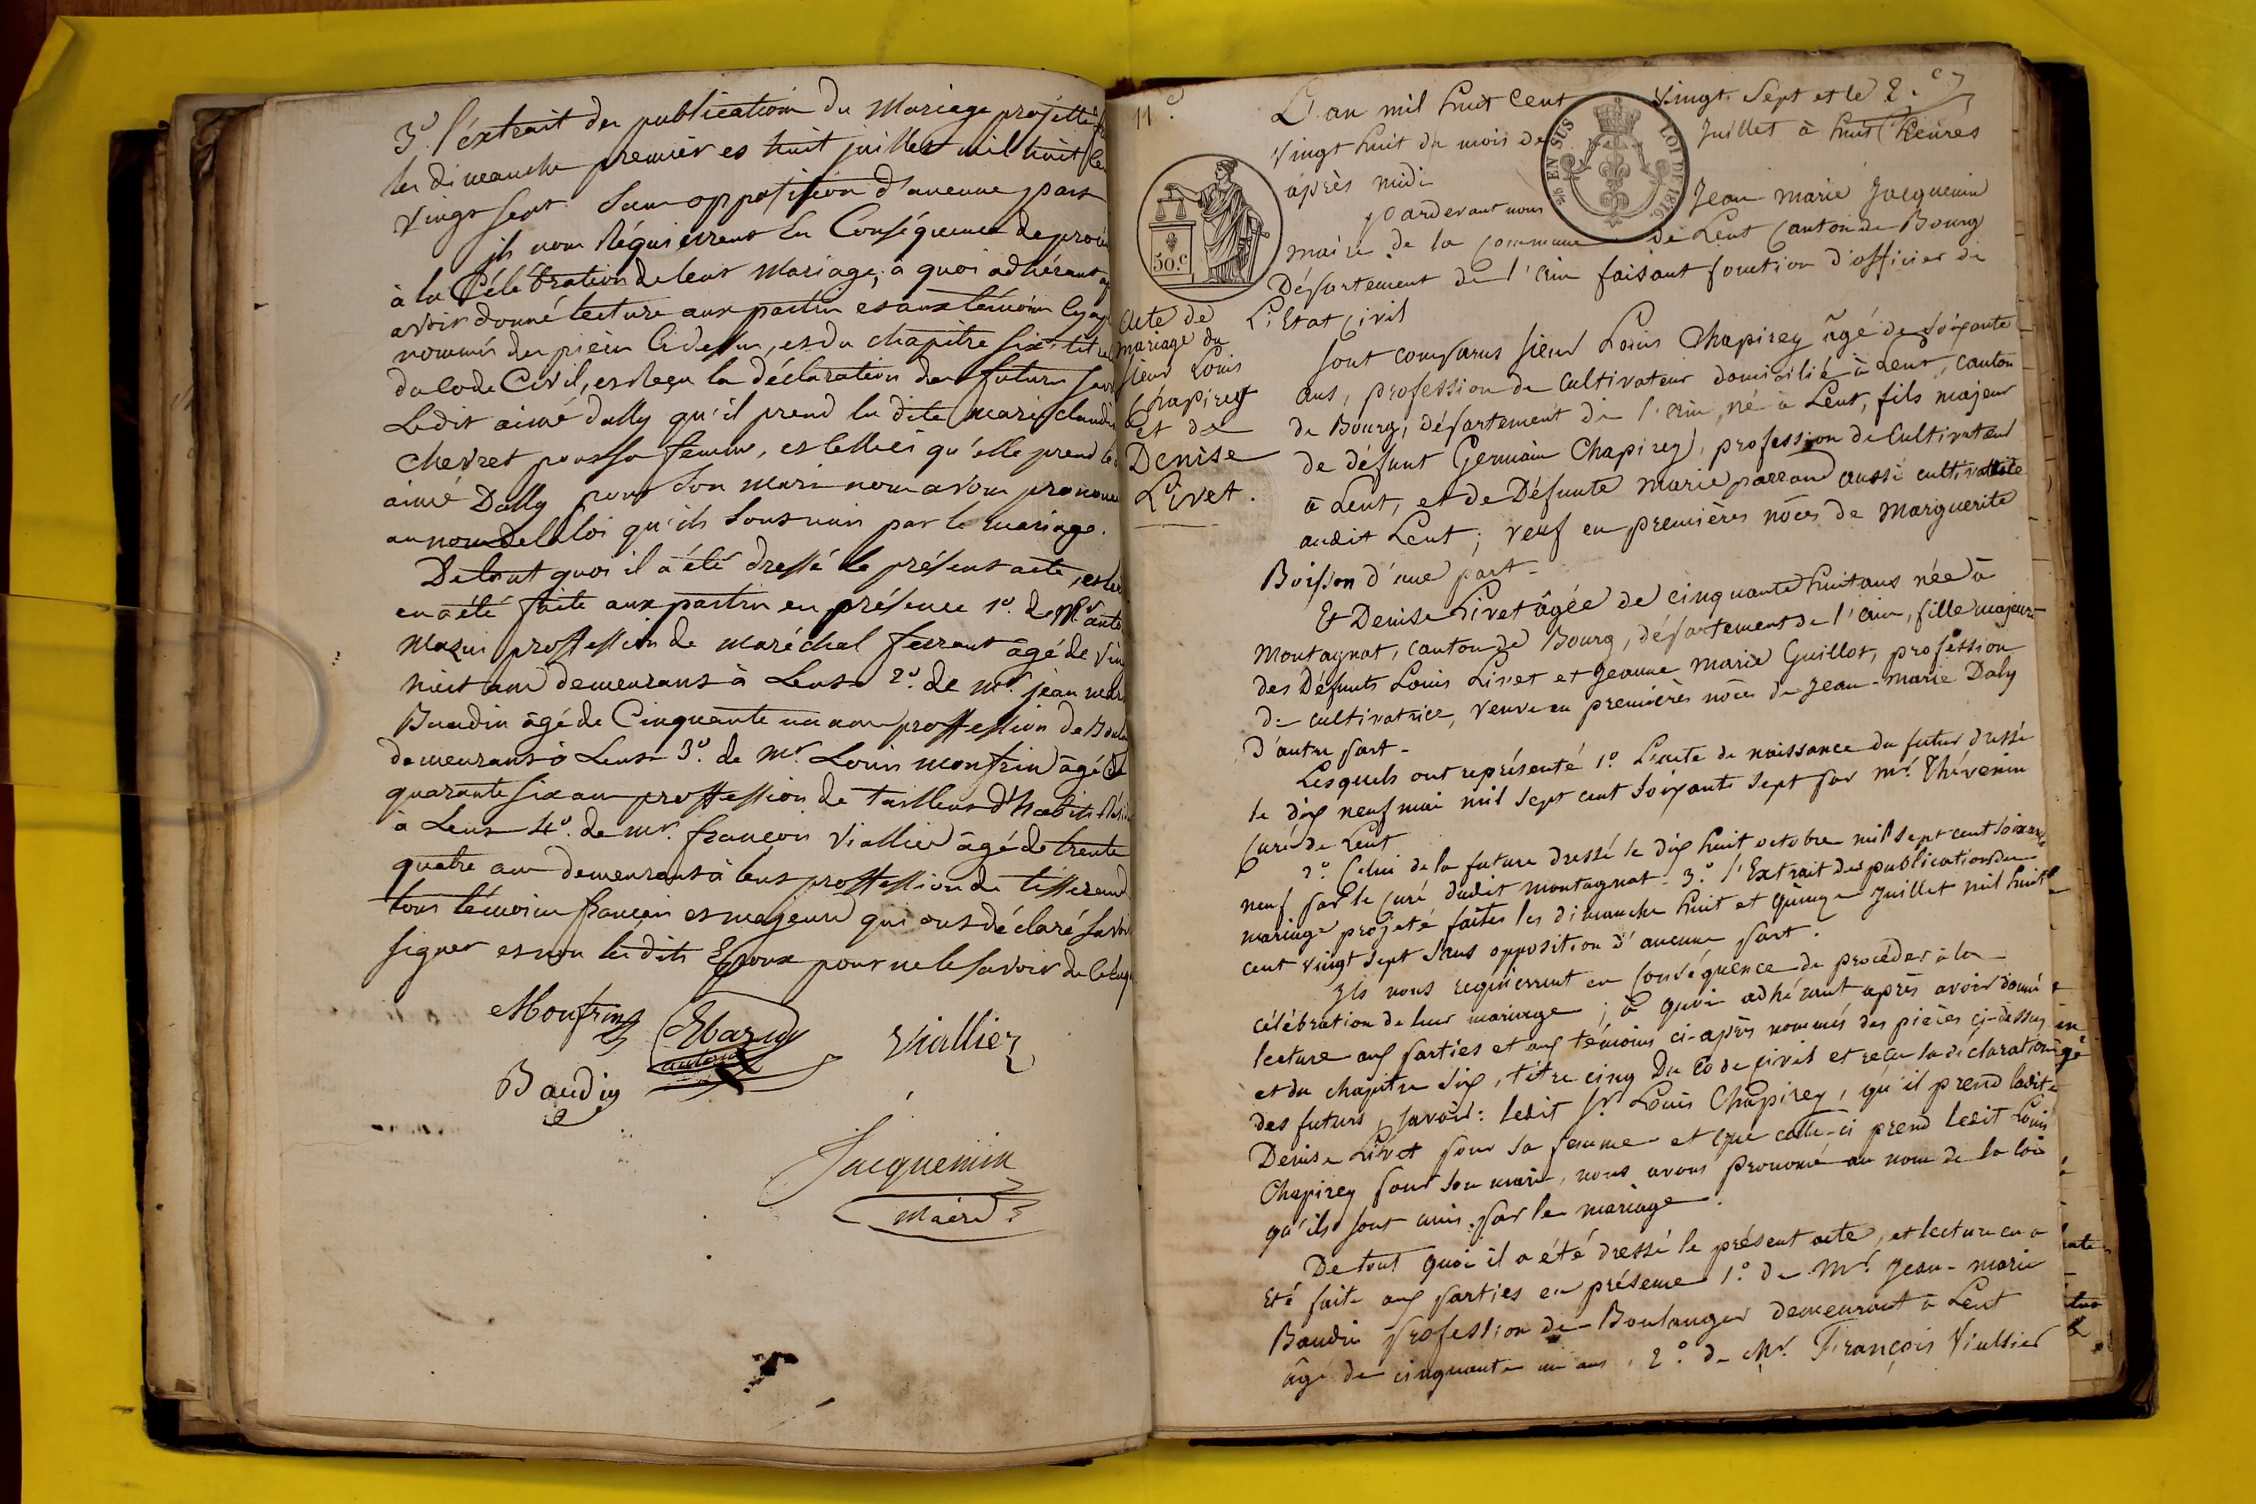 3º. l'extrait des publications du Mariage projetté
les dimanche premier et huit juillet mil huit
vingt sept. Sans opposition d'aucune part
ils nous Réquierrent En Conséquence de
à la Célébration de leur Mariage, à quoi adhérant
avoir donné lecture aux parties et aux témoins
nommés des pièces Cidessus, et du chapitre six
du Code Civil, et Reçu la déclaration des futurs
Ledit aimé dally qu'il prend la dite marie
Chevret pour sa femme, et celleci qu'elle prend
aimé Dally pour son mari nous avons
au nom De la loi qu'ils sont unis par le mariage.
De tout quoi il a été dressé le présent acte, et
en a été faite aux parties en présence 1º. de Mr.
Mazui proffession de maréchal ferrant âgé de
huit ans demeurant à Lent 2º. de mr. jean
Baudin âgé de Cinquante un ans proffession de
demeurant à Lent 3º. de Mr Louis monfrin âgé de
quarante six ans proffession de tailleur d'habits
à Lent 4º. de mr. françois Viallier âgé de trente
quatre ans demeurant à lent proffession de tisserend
tous témoins français et majeurs qui ont déclaré
signer et non les dits Epoux pour ne le savoir de
Monfrin
Viallier
Baudin
Jacquemin
Maire
11e.
50.c
¾ EN SUS
LOI DE 1816.
Acte de
mariage du
sieur Louis
Chapirey
et de
Denise
Livet.
L'an mil huit Cent vingt Sept et le
vingt huit du mois de Juillet à huit heures
après midi
pardevant nous Jean marie Jacquemin
maire de la Commune de Lent Canton de Bourg
Département de l'ain faisant fonction d'officier de
L'Etat Civil
sont comparus sieur Louis Chapirey âgé de soixante
ans, profession de Cultivateur domicilié à Lent, canton
de Bourg, département de l'ain, né à Lent, fils majeur
de défunt Germain Chapirey, profession de Cultivateur
à Lent, et de Défunte Marie parrand aussi cultivatrice
audit Lent; veuf en premières nôces de Marguerite
Boisson d'une part-
Et Denise Livet âgée de cinquante huit ans née à
Montagnat, canton de Bourg, département de l'ain, fille majeure
des Défunts Louis Livet et Jeanne Marie Guillot, profession
de cultivatrice, veuve en premières nôces de Jean-Marie Daly
D'autre part-
Lesquels ont représenté 1º. L'acte de naissance du futur dressé
le dix neuf mai mil sept cent soixante sept par Mr. Thévenin
Curé de Lent
2º. Celui de la future dressé le dix huit octobre mil sept cent soixante
neuf par le curé dudit montagnat- 3º. l'Extrait des publications du
mariage projeté faites les dimanche huit et quinze Juillet mil huit
cent vingt sept sans opposition d'aucune part.
Ils nous requièrrent en conséquence de procéder à la
célébration de leur mariage; à quoi adhérant après avoir donné
lecture aux parties et aux témoins ci-après nommés des pièces ci-dessus
et du chapitre six, titre cinq Du Code civil et reçu la déclaration
des futurs, savoir: ledit Sr. Louis Chapirey, qu'il prend ladite
Denise Livet pour sa femme et que celle-ci prend ledit Louis
Chapirey pour son mari, nous avons prononcé au nom de la loi
qu'ils sont unis par le mariage.
De tout quoi il a été dressé le présent acte, et lecture en a
été faite aux parties en présence 1º. de Mr. Jean-marie
Baudin profession de Boulanger demeurant à Lent
âgé de cinquante un ans, 2º. de Mr. François Viallier